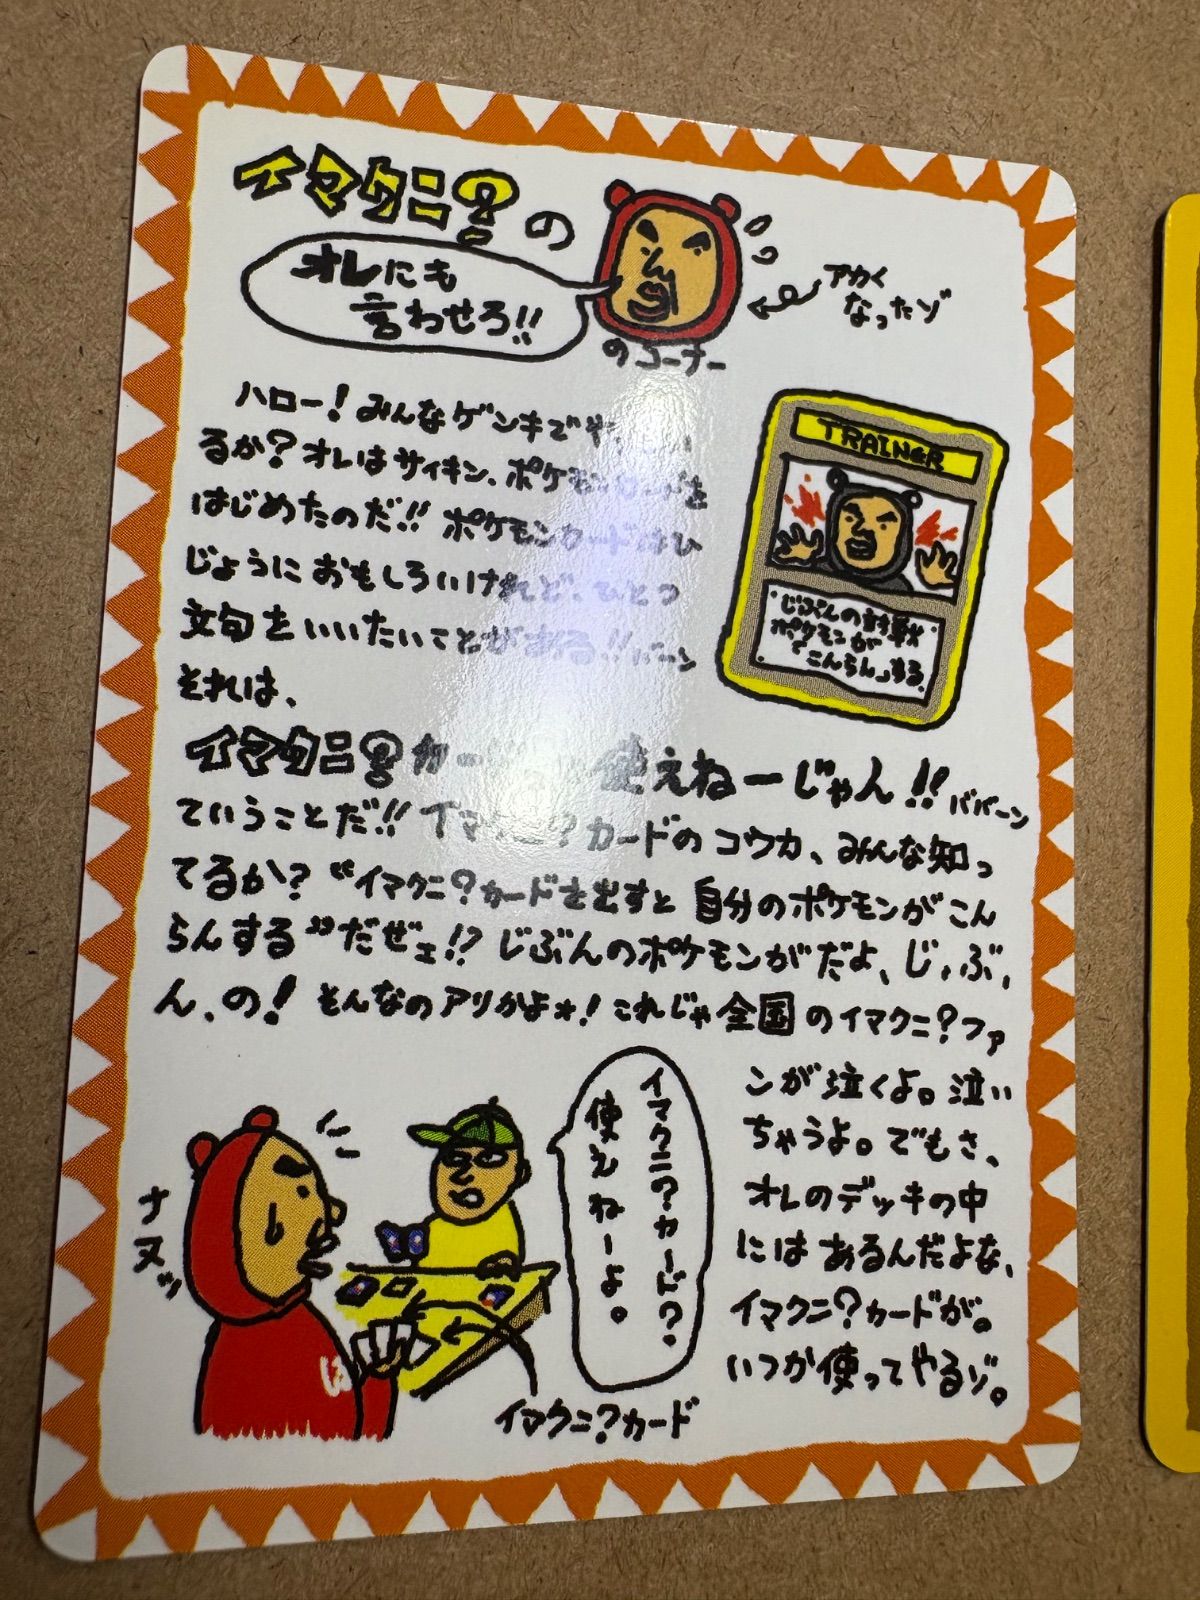 イマクニ?の
オレにも
言わせろ!!
のコーナー
アカく
なったゾ
ハロー! みんなゲンキでや
るか? オレはサイキン、ポケモンカードを
はじめたのだ!! ポケモンカードはひ
じょうにおもしろいけれど、ひとつ
文句をいいたいことがある!! バーン
それは、
TRAINER
・じぶんの対戦
ポケモンが
・「こんらん」する。
イマクニ?カー 使えねーじゃん!! ババーン
ていうことだ!! イマクニ?カードのコウカ、みんな知っ
てるか? “イマクニ?カードを出すと自分のポケモンがこん
らんする”だぜェ!? じぶんのポケモンがだよ、じ、ぶ、
ん、の! そんなのアリかよォ! これじゃ全国のイマクニ?ファ
ンが泣くよ。泣い
ちゃうよ。でもさ、
オレのデッキの中
にはあるんだよな、
イマクニ?カードが。
いつか使ってやるゾ。
イマクニ?カード?
使えねーよ。
ナヌッ
イマクニ?カード